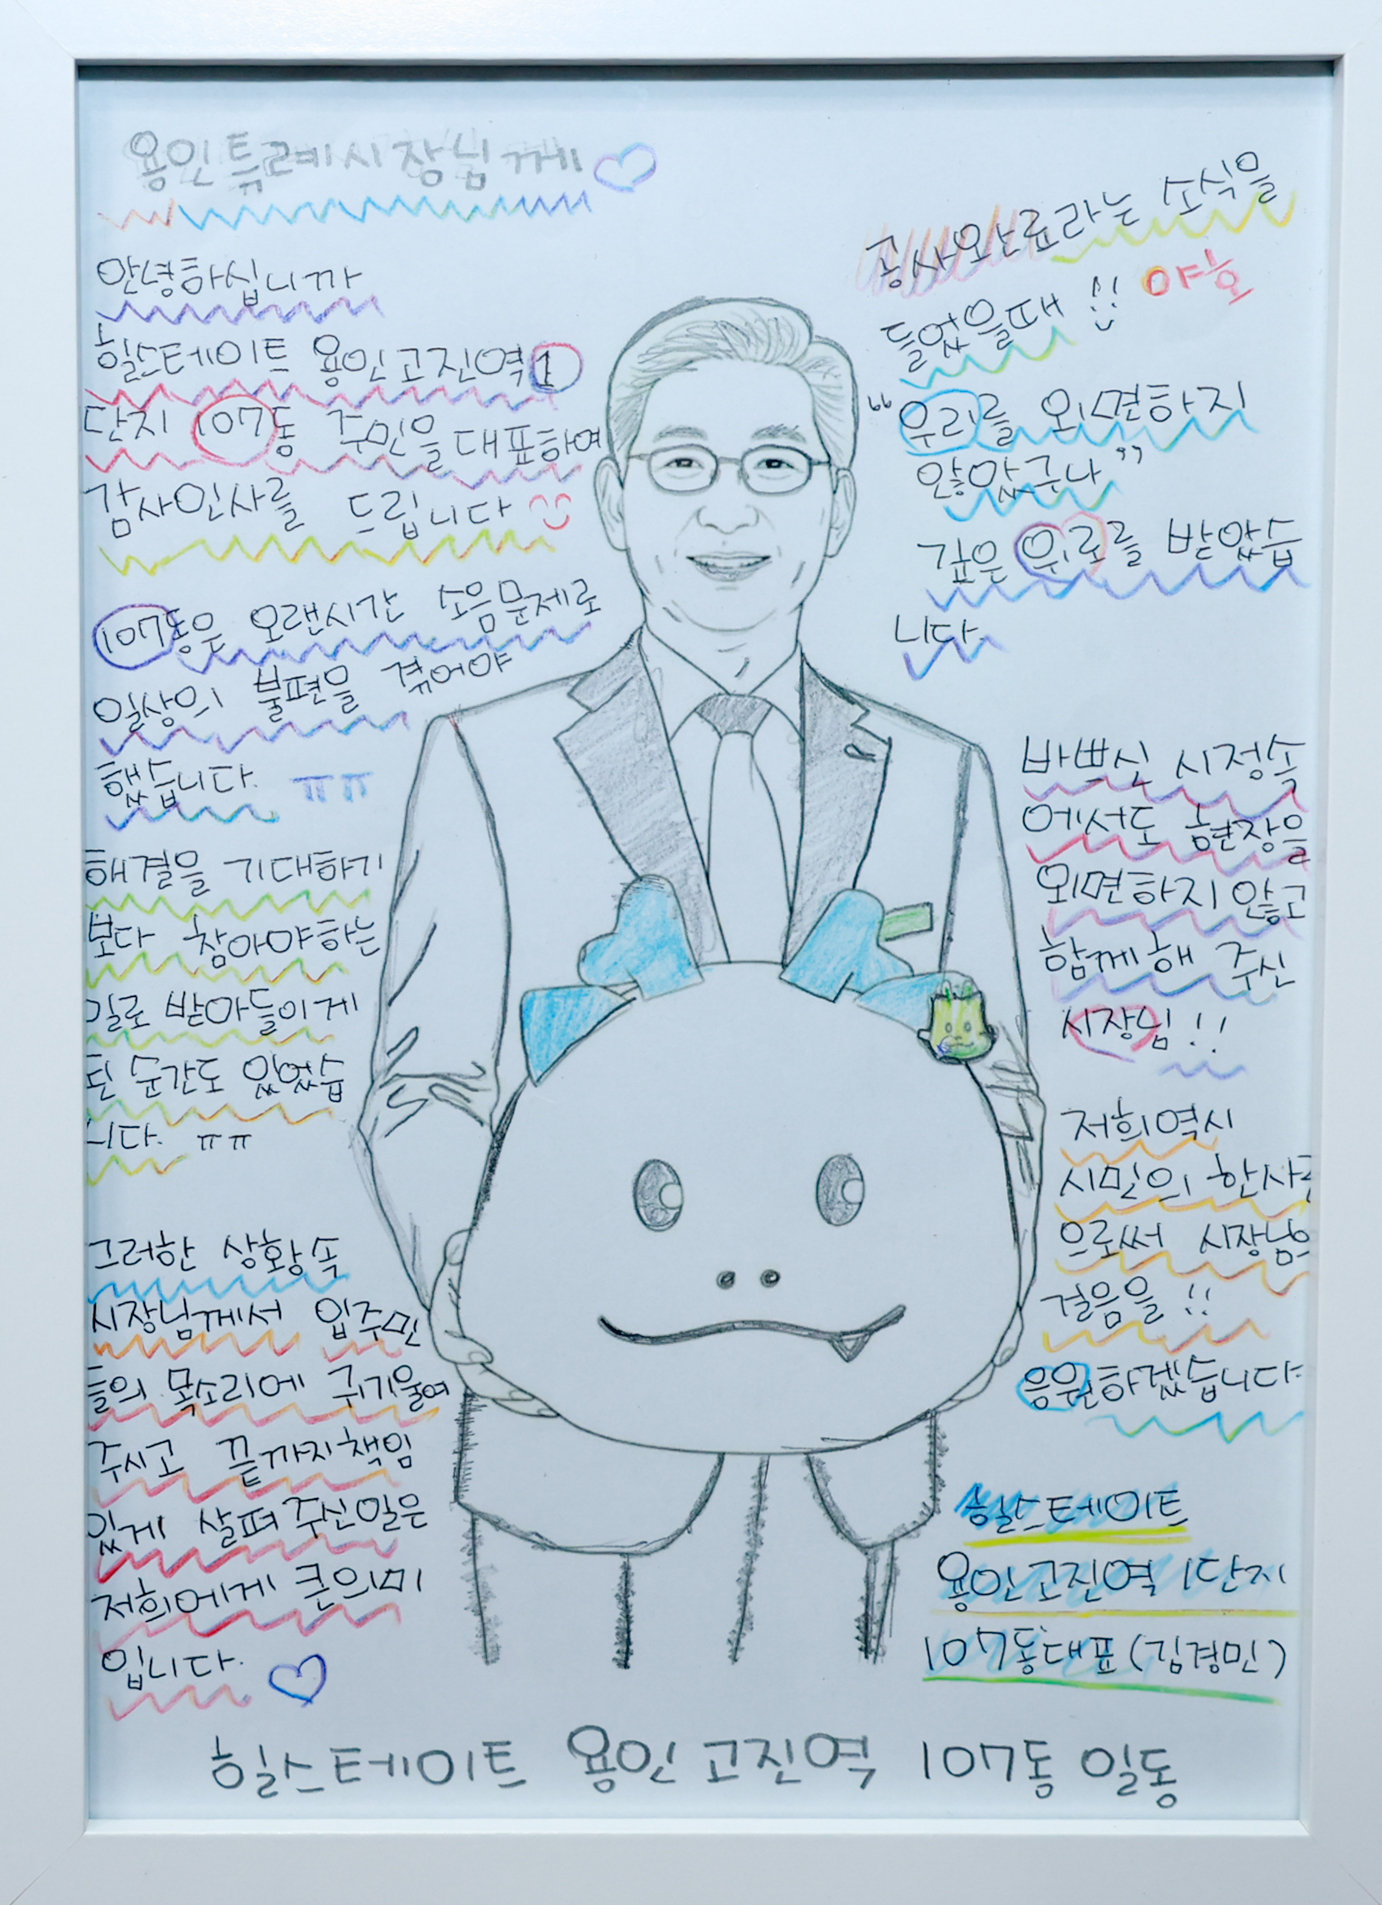 용인특례시장님께
안녕하십니까
힐스테이트 용인고진역1
단지 107동 주민을 대표하여
감사인사를 드립니다
107동은 오랜시간 소음문제로
일상의 불편을 겪어야
했습니다. ㅠㅠ
해결을 기대하기
보다 참아야하는
길로 받아들이게
된 순간도 있었습
니다. ㅠㅠ
그러한 상황속
시장님께서 입주민
들의 목소리에 귀기울여
주시고 끝까지책임
있게 살펴주신일은
저희에게 큰의미
입니다.
공사완료라는 소식을
들었을때 !! 야호
"우리를 외면하지
않았구나"
깊은 위로를 받았습
니다.
바쁘신 시정속
에서도 현장을
외면하지 않고
함께해 주신
시장님!!
저희역시
시민의 한사람
으로써 시장님의
걸음을 !!
응원하겠습니다.
힐스테이트
용인고진역 1단지
107동대표(김경민)
힐스테이트 용인고진역 107동 일동